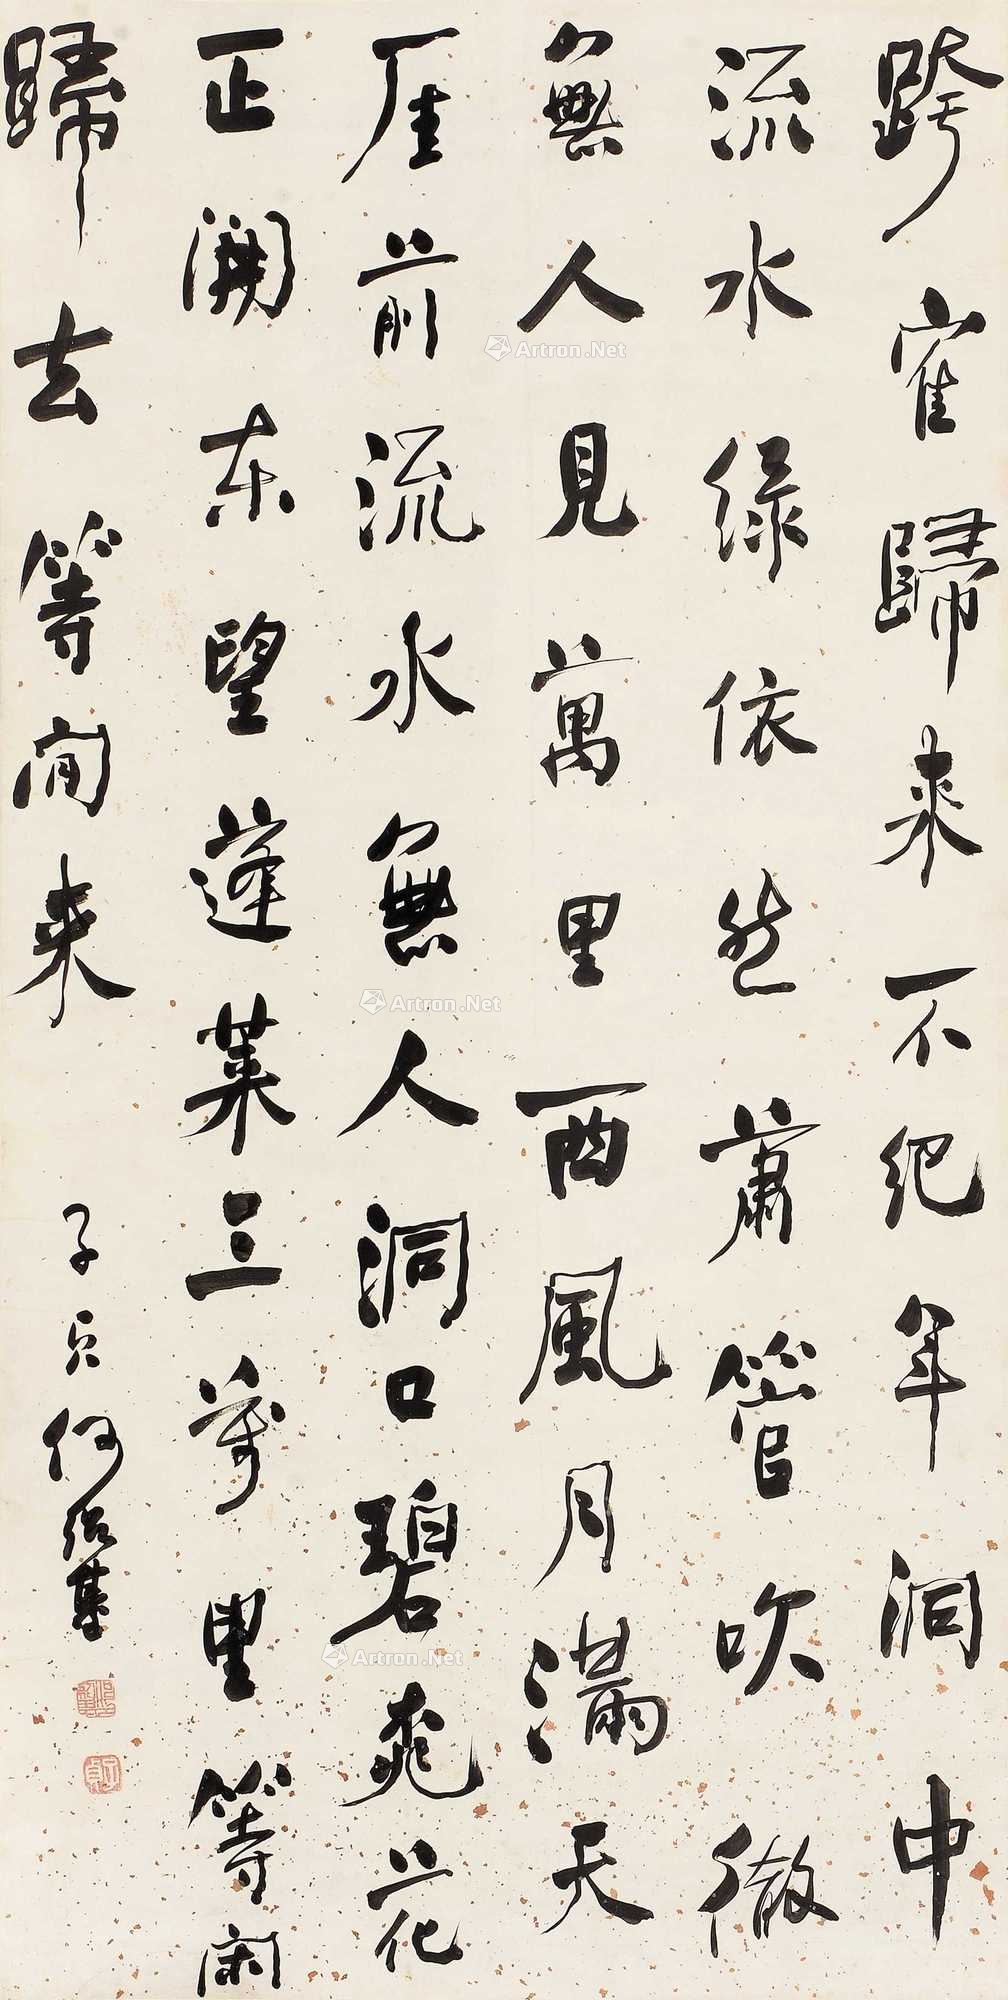 跨隺歸来不纪年洞中
流水绿依然萧管吹徹
無人見萬里西風月滿天
厓前流水無人洞口碧桃花
正開东望蓬莱三萬里等闲
歸去等閒来
子貞何绍基
Artron.Net
Artron.Net
Artron.Net